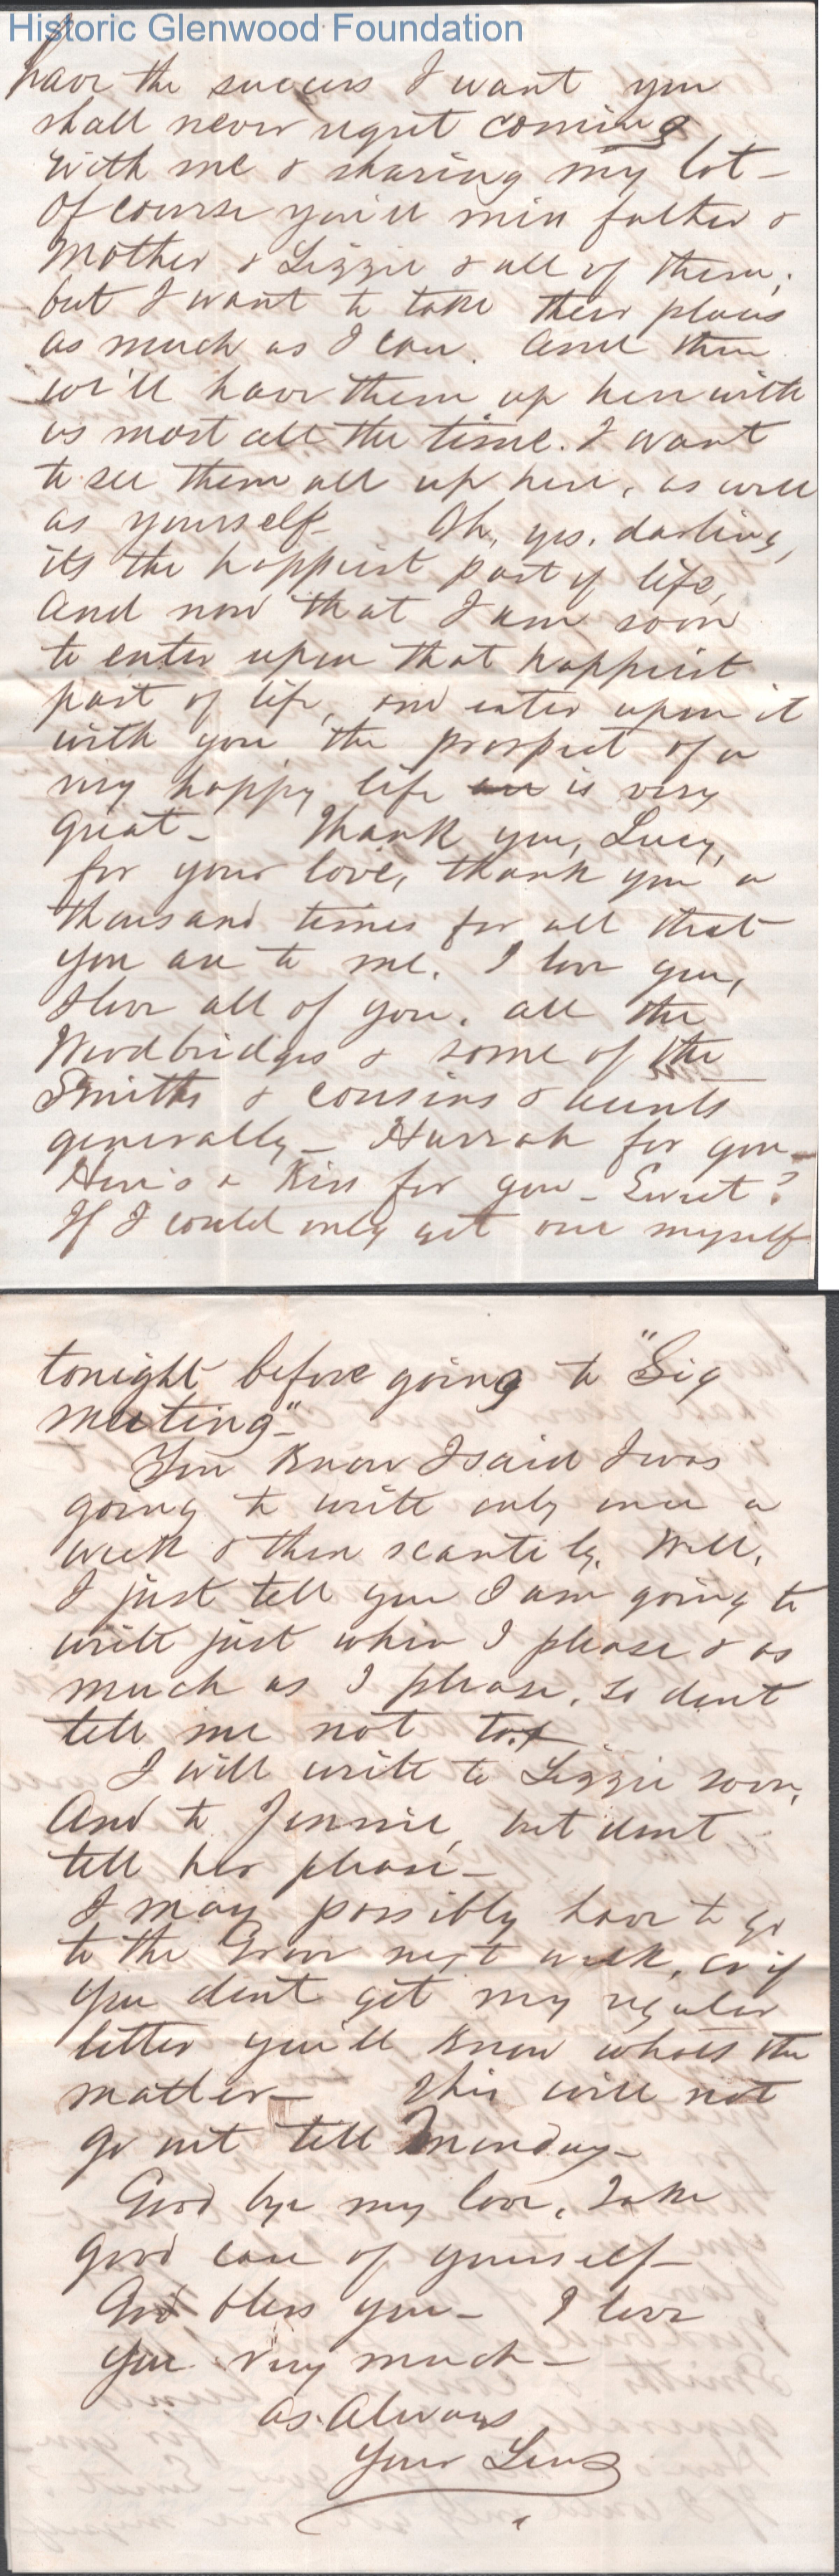 Historic Glenwood Foundation
have the success I want you
shall never regret coming
with me & sharing my lot –
Of course you'll miss father &
Mother & Lizzie & all of them,
but I want to take their places
as much as I can. And then
we'll have them up here with
us most all the time. I want
to see them all up here, as well
as yourself – Oh, yes, darling,
its the happiest part of life,
And now that I am soon
to enter upon that happiest
part of life, and enter upon it
with you the prospect of a
very happy life is very
great – Thank you, Lucy,
for your love, thank you a
thousand times for all that
you are to me. I love you,
I love all of you. all the
Woodbridges & some of the
Smiths & cousins & aunts
generally – Hurrah for you –
Here's a Kiss for you – Sweet?
If I could only get one myself
tonight before going to "Sig
meeting" –
You know I said I was
going to write only once a
week & then scantily. Well,
I just tell you I am going to
write just when I please & as
much as I please, so dont
tell me not to.
I will write to Lizzie soon,
And to Jennie, but dont
tell her please –
I may possibly have to go
to the Grove next week, so if
you dont get my regular
letter you'll know whats the
matter – This will not
go out till Monday –
Good bye my love, Take
good care of yourself –
God bless you – I love
you very much –
As Always
Your Linus